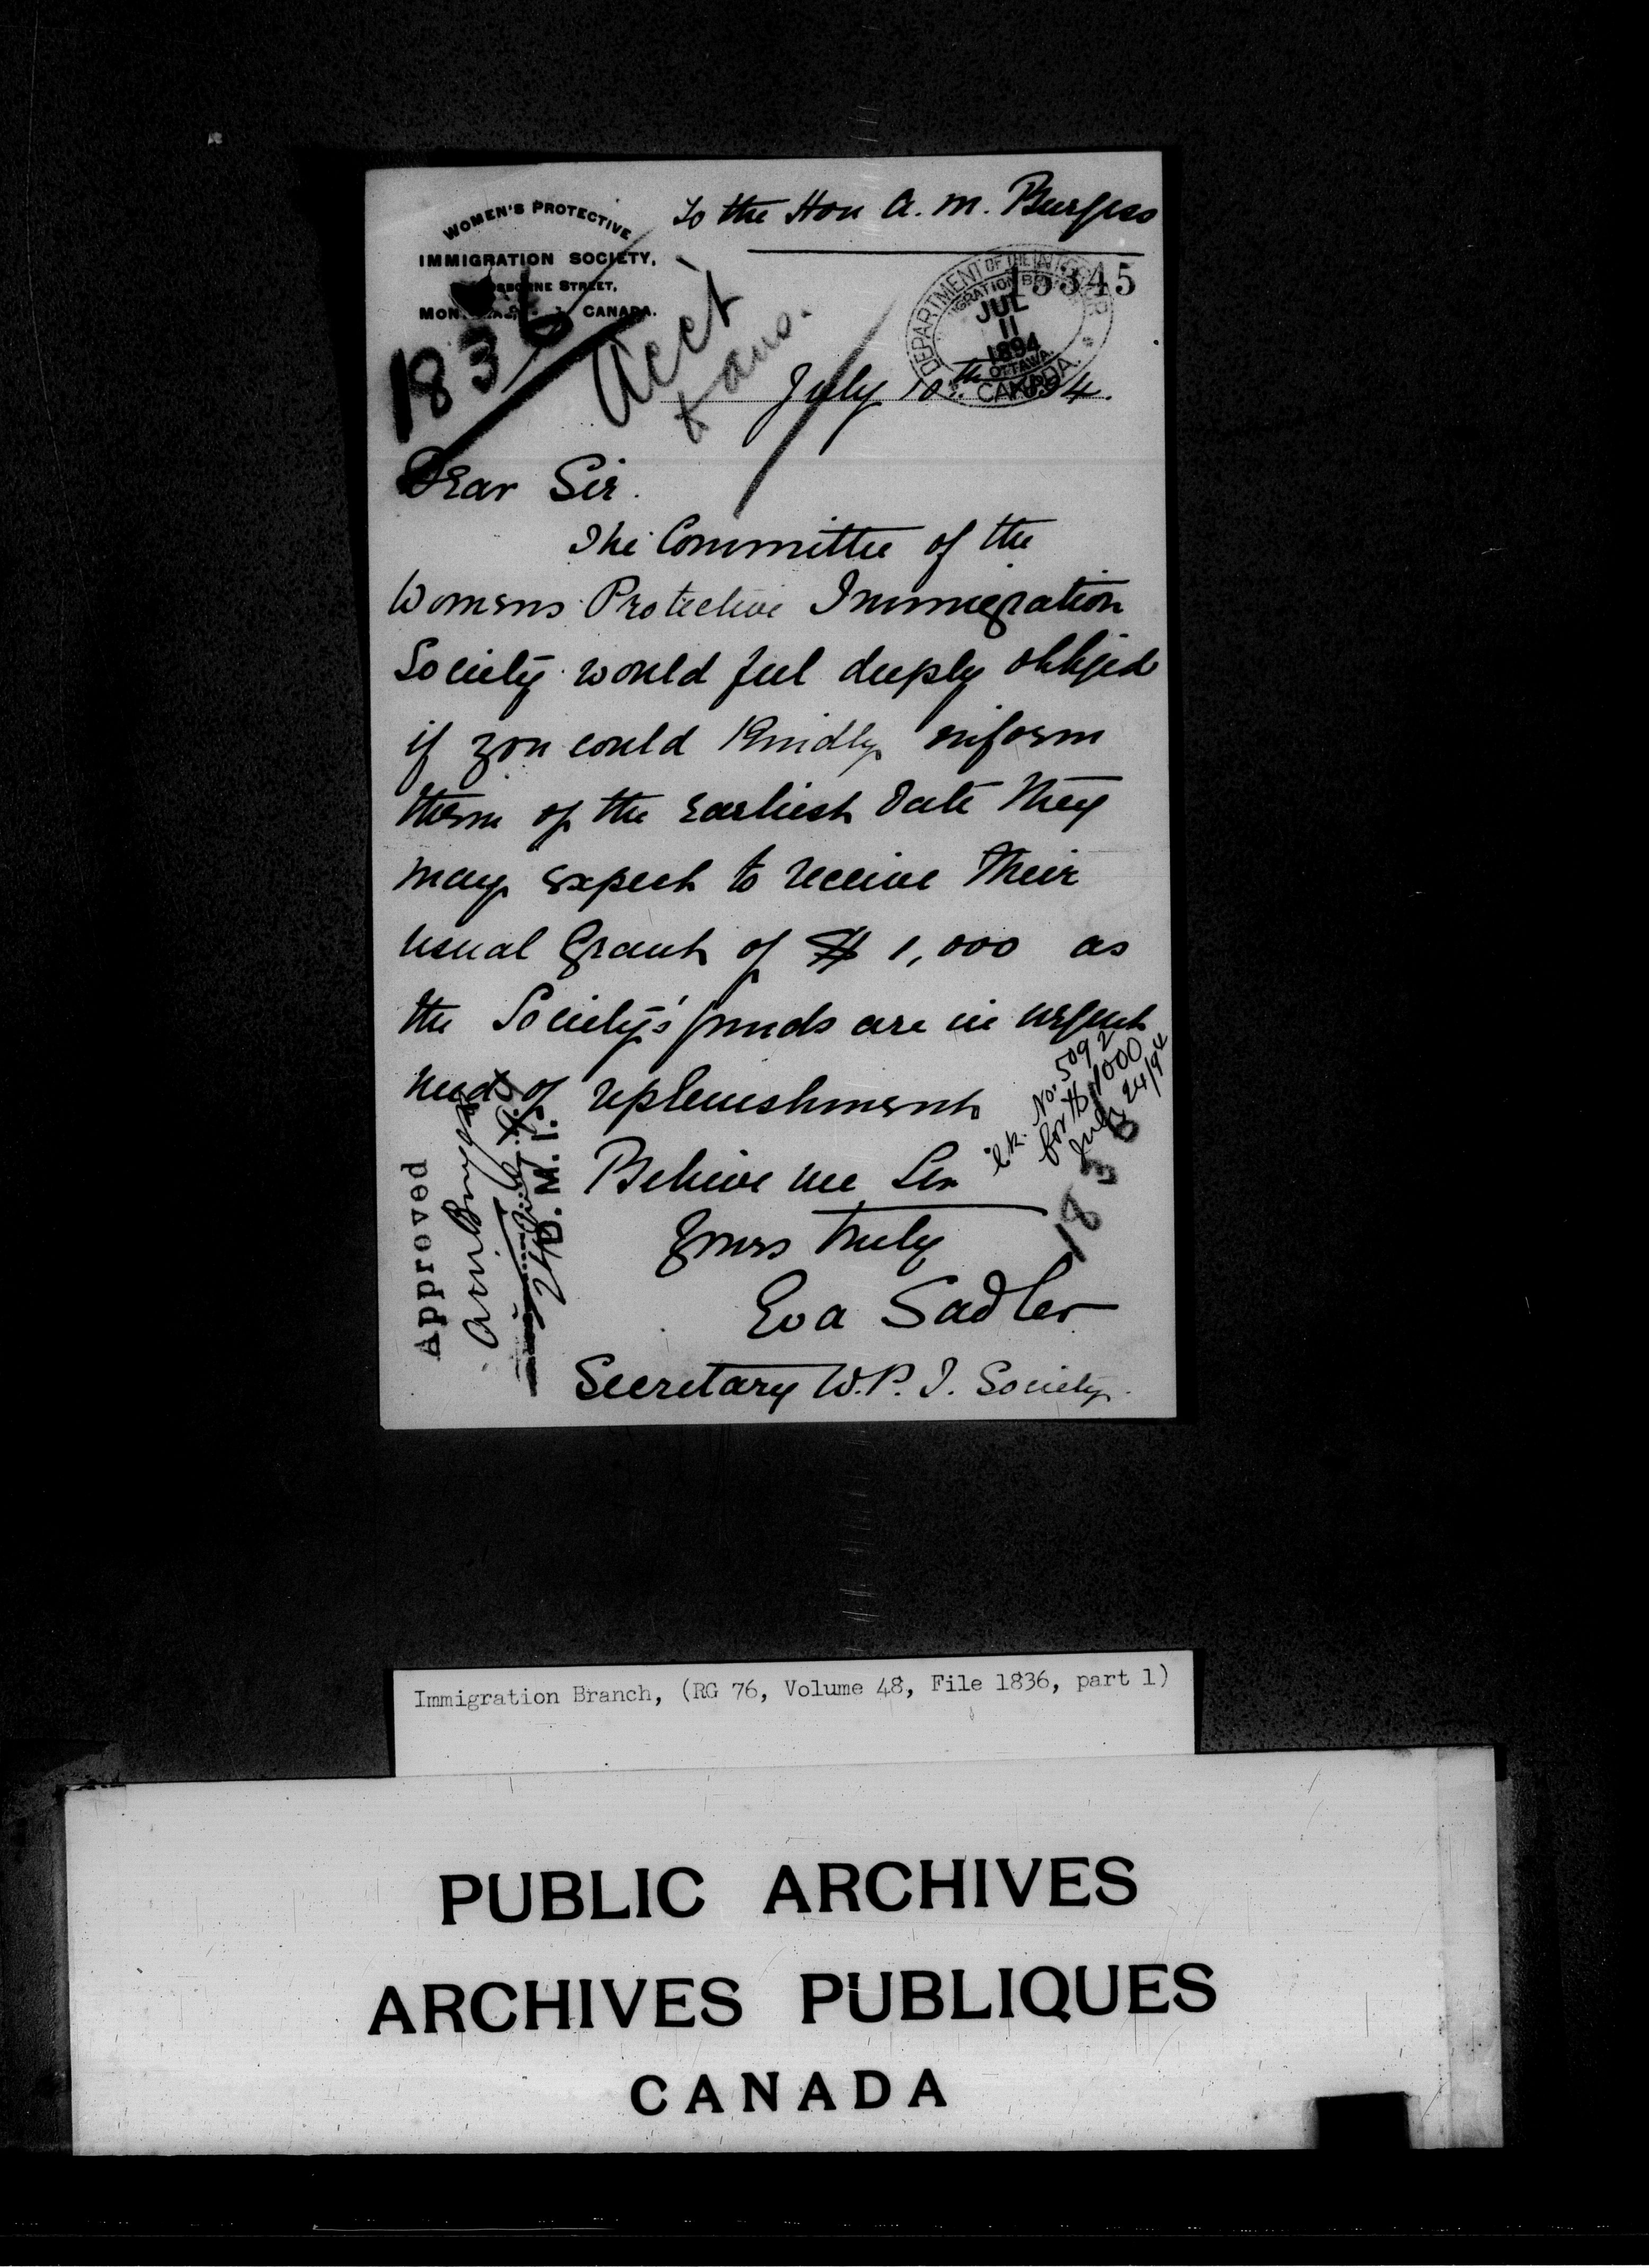 To the Hon A. M. Burgess
WOMEN'S PROTECTIVE
IMMIGRATION SOCIETY,
STREET,
CANADA.
1836
Acct
15345
DEPARTMENT OF THE INTERIOR
JUL
11
1894
OTTAWA.
CANADA.
July 10th 1894.
Dear Sir.
The Committee of the
Womens Protective Immigration
Society would feel deeply obliged
if you could kindly inform
them of the earliest date they
may expect to receive their
usual Grant of $ 1,000 as
the Society's funds are in urgent
need of replenishment
Believe me Sir
Yours truly
Eva Sadler
Secretary W.P.I. Society.
Approved
A M Burgess
D. M. I.
No. 5092
for $1000
July 24/94
1836
Immigration Branch, (RG 76, Volume 48, File 1836, part 1)
PUBLIC ARCHIVES
ARCHIVES PUBLIQUES
CANADA